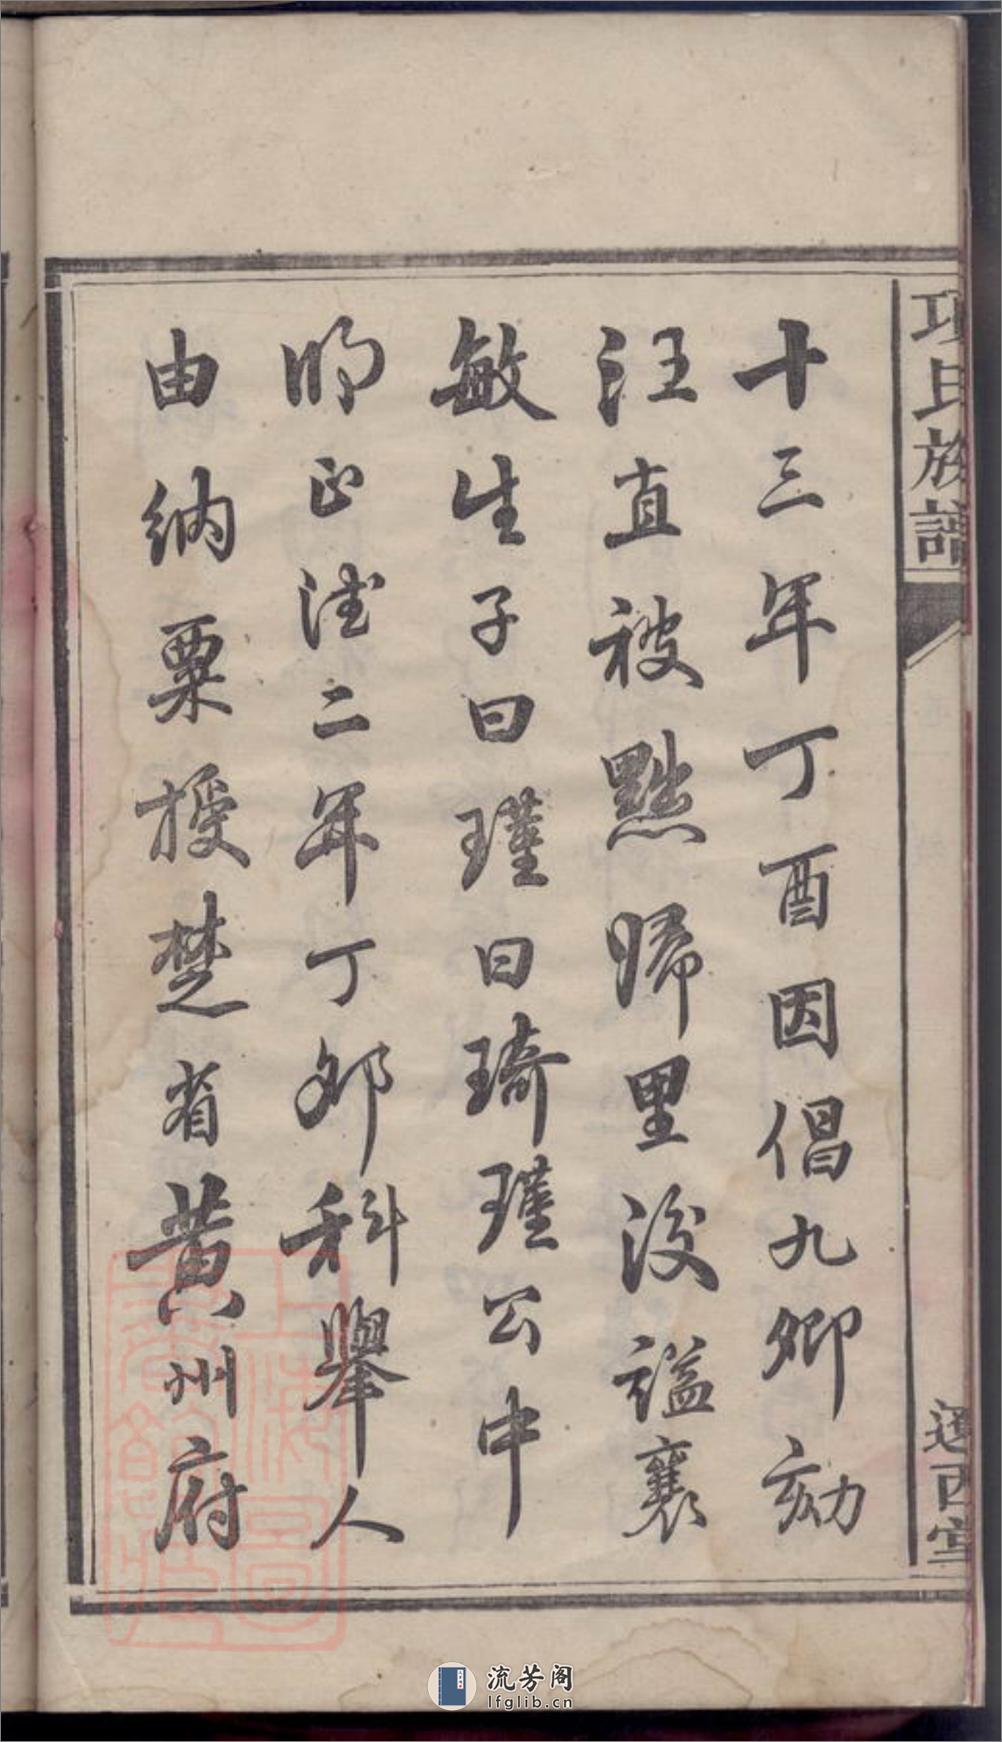 十三年丁酉因倡九卿劾
汪直被黜歸里後謚襄
敏生子曰瑾曰琦瑾公中
明正德二年丁卯科舉人
由納粟授楚省黃州府
項氏族譜
遼西堂
上海圖書館藏
流芳阁
lfglib.cn